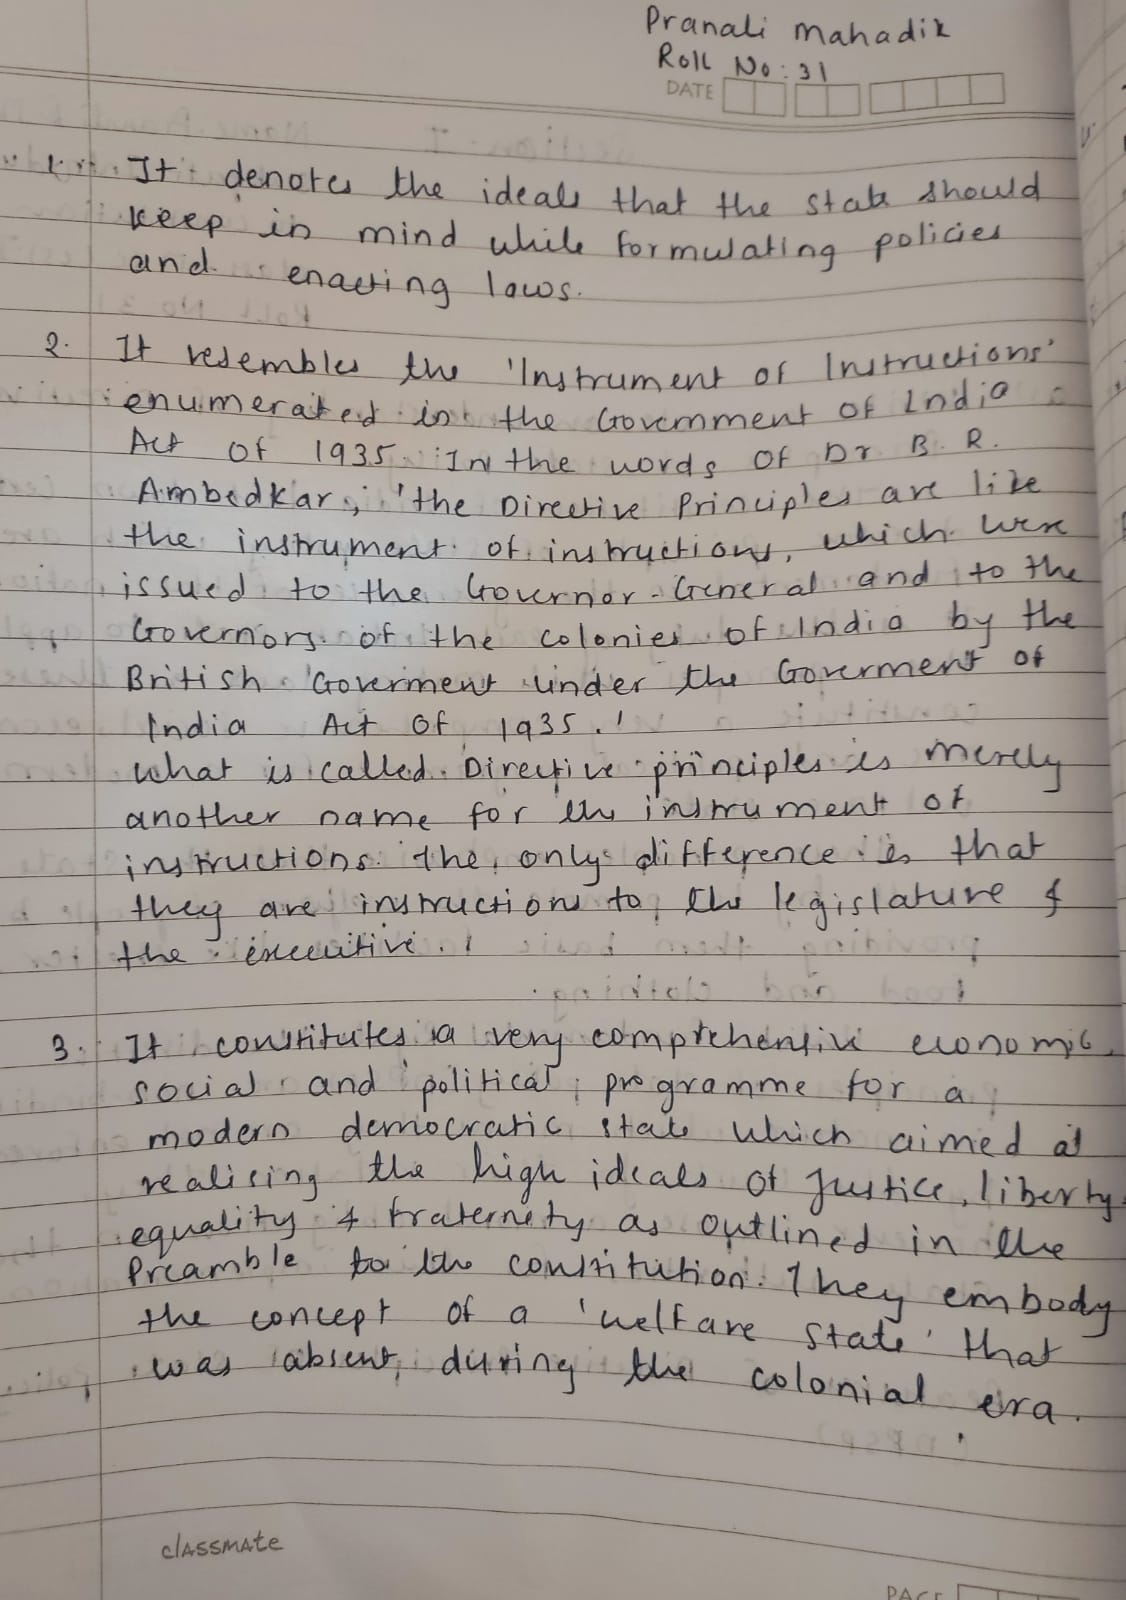 Pranali Mahadik
Roll No: 31
DATE
1. It denotes the ideals that the state should
keep in mind while formulating policies
and enacting laws.
2. It resembles the 'Instrument of Instructions'
enumerated in the Government of India
Act of 1935. In the words of Dr B. R.
Ambedkar, 'the Directive Principles are like
the instrument of instructions, which were
issued to the Governor-General and to the
Governors of the colonies of India by the
British Goverment under the Goverment of
India Act of 1935.'
what is called Directive principles is merely
another name for the instrument of
instructions. The only difference is that
they are instructions to the legislature &
the executive.
3. It constitutes a very comprehensive economic,
social and political programme for a
modern democratic state which aimed at
realising the high ideals of Justice, liberty,
equality & fraternety as outlined in the
Preamble to the constitution. They embody
the concept of a 'welfare state' that
was absent, during the colonial era.
classmate
PAGE